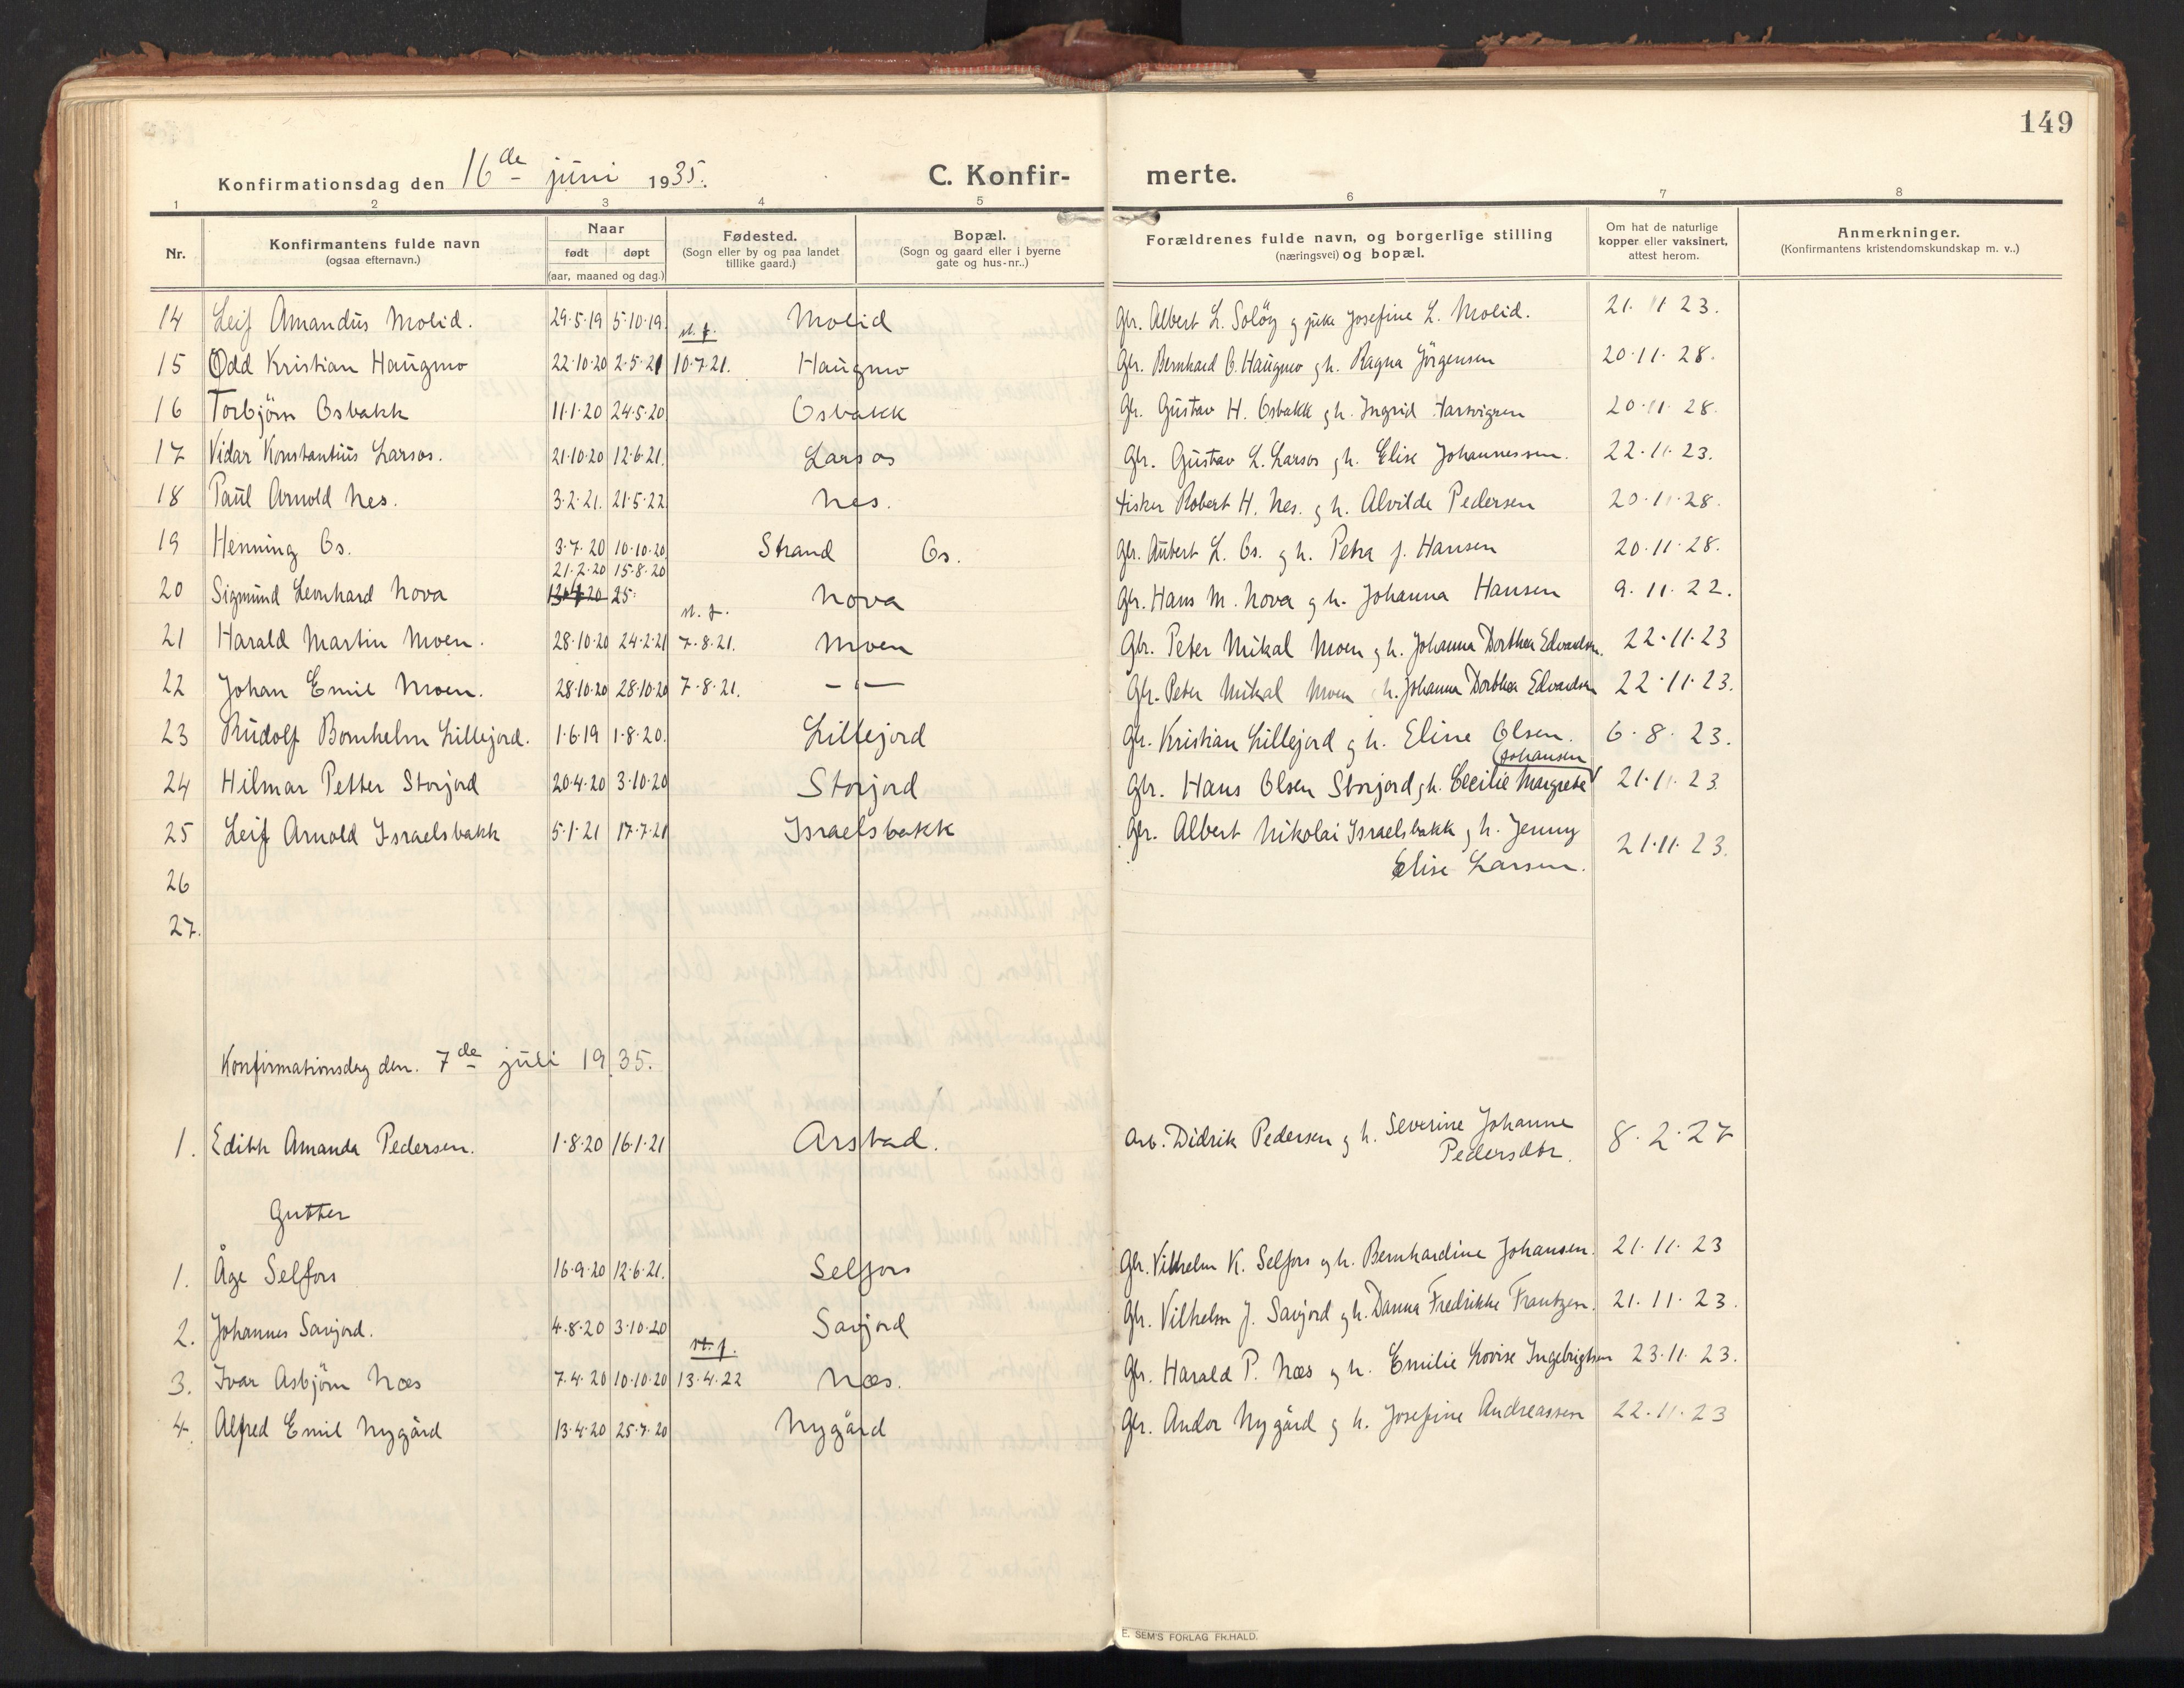 149
Konfirmationsdag den 16de juni 1935.
C. Konfir- merte.
1 2 3 4 5 6 7 8
Nr. Konfirmantens fulde navn (ogsaa efternavn.) Naar født døpt (aar, maaned og dag.) Fødested. (Sogn eller by og paa landet tillike gaard.) Bopæl. (Sogn og gaard eller i byerne gate og hus-nr..) Forældrenes fulde navn, og borgerlige stilling (næringsvei) og bopæl. Om hat de naturlige kopper eller vaksinert, attest herom. Anmerkninger. (Konfirmantens kristendomskundskap m. v..)
14 Leif Amandus Molid. 29·5·19 5·10·19. Molid Gbr. Albert L. Solöy g pike Josefine L. Molid. 21· 11 23.
st. f.
15 Odd Kristian Haugmo 22·10·20 2·5·21 10·7·21. Haugmo Gbr. Bernhard O. Haugmo g h. Ragna Jörgensen 20·11·28.
16 Torbjörn Osbakk 11·1·20 24·5·20 Osbakk Gbr. Gustav H. Osbakk g h. Ingrid Hartvigsen 20·11·28.
17 Vidar Konstantius Larsos. 21·10·20 12·6·21. Larsos Gbr. Gustav L. Larsos g h. Elise Johannessen. 22·11·23.
18 Paul Arnold Nes. 3·2·21. 21·5·22 Nes. Fisker Robert H. Nes. g h. Alvilde Pedersen 20·11·28.
19 Henning Os. 3·7·20 10·10·20 Strand Os. Gbr. Aubert L. Os. g h. Petra J. Hansen 20·11·28.
21·2·20 15·8·20
20 Sigmund Leonhard Nova 13·4·20 25· Nova Gbr. Hans M. Nova g h. Johanna Hansen 9.11.22.
st. f.
21 Harald Martin Moen. 28·10·20 24·2·21 7·8·21. Moen Gbr. Peter Mikal Moen g h. Johanna Dorthea Edvardsen. 22·11·23
22 Johan Emil Moen. 28·10·20 28·10·20 7·8·21. — " — Gbr. Peter Mikal Moen g h. Johanna Dorthea Edvardsen 22·11·23.
23 Rudolf Bornholm Lillejord. 1·6·19 1·8·20. Lillejord Gbr. Kristian Lillejord g h. Eline Olsen. 6·8·23.
Johansen
24 Hilmar Petter Storjord 20·4·20 3·10·20 Storjord Gbr. Hans Olsen Storjord g h. Cecilie Margrete 21·11·23.
25 Leif Arnold Israelsbakk 5·1·21 17·7·21 Israelsbakk Gbr. Albert Nikolai Israelsbakk g h. Jenny
Elise Larsen. 21·11·23.
26
27.
Konfirmationsdag den. 7de juli 1935.
1. Edith Amanda Pedersen. 1·8·20 16·1·21 Arstad. Arb. Didrik Pedersen g h. Severine Johanne
Pedersdtr. 8·2·27
Gutter
1. Åge Selfors 16·9·20 12·6·21. Selfors Gbr. Vilhelm K. Selfors g h. Bernhardine Johansen. 21·11·23
2. Johannes Savjord. 4·8·20 3·10·20 Savjord Gbr. Vilhelm J. Savjord g h. Danna Fredrikke Frantzen. 21.11.23.
st. f.
3. Ivar Asbjörn Næs 7·4·20 10·10·20 13·4·22 Næs. Gbr. Harald P. Næs g h. Emilie Lovise Ingebrigtsen 23·11·23.
4. Alfred Emil Nygård 13·4·20 25·7·20 Nygård Gbr. Andor Nygård g h. Josefine Andreassen 22·11·23
E. SEM'S FORLAG FR.HALD.